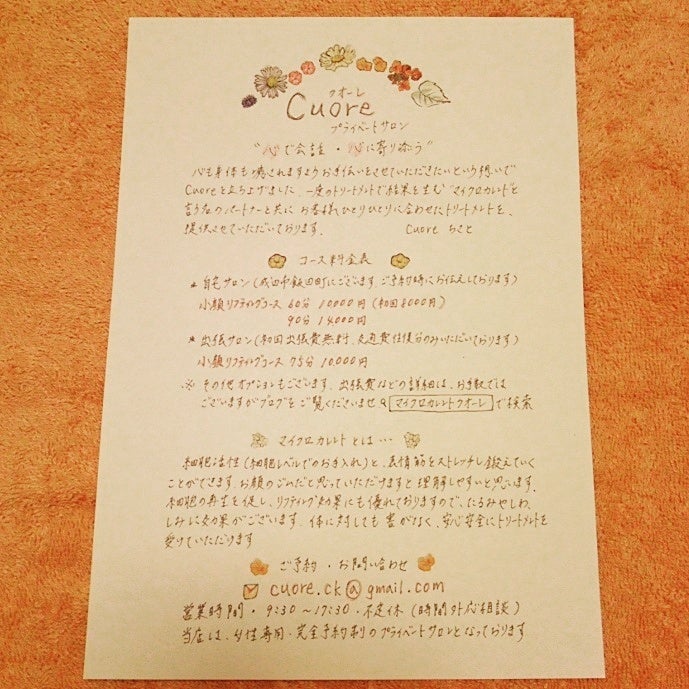 クオーレ
Cuore
プライベートサロン
"心で会話・心に寄り添う"
心も身体も癒されますようお手伝いをさせていただきたいという想いで
Cuoreを立ち上げました。一度のトリートメントで結果を生む"マイクロカレント"と
言う名のパートナーと共に お客様ひとりひとりに合わせたトリートメントを、
提供させていただいております。 Cuore ちさと
コース料金表
* 自宅サロン(成田市飯田町にございます。ご予約時にお伝えしております)
小顔リフティングコース 60分 10000円(初回8000円)
90分 14000円
* 出張サロン(初回出張費無料、交通費往復分のみいただいております)
小顔リフティングコース 75分 10000円
※ その他オプションもございます。出張費などの詳細は、お手数では
ございますがブログをご覧くださいませ マイクロカレントクオーレ で検索
マイクロカレントとは…
細胞活性(細胞レベルでのお手入れ)と、表情筋をストレッチし鍛えていく
ことができます。お顔のジムだと思っていただけますと理解しやすいと思います。
細胞の再生を促し、リフティング効果にも優れておりますので、たるみやしわ、
しみに効果がございます。体に対しても害がなく、安心安全にトリートメントを
受けていただけます
ご予約・お問い合わせ
cuore.ck@gmail.com
営業時間・9:30〜17:30・不定休(時間外応相談)
当店は、女性専用・完全予約制のプライベートサロンとなっております